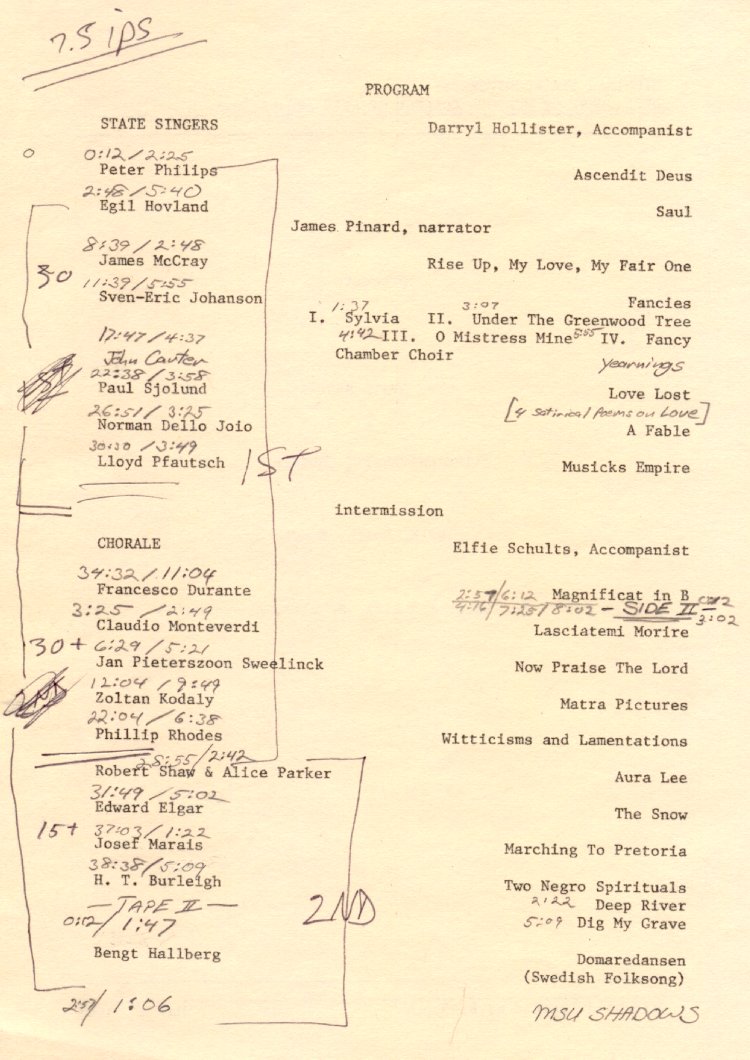 7.5 ips
PROGRAM
STATE SINGERS
Darryl Hollister, Accompanist
0:12 / 2:25
Peter Philips Ascendit Deus
2:48 / 5:40
Egil Hovland Saul
James Pinard, narrator
8:39 / 2:48
James McCray Rise Up, My Love, My Fair One
30 11:39 / 5:55
Sven-Eric Johanson Fancies
1:37 3:07
I. Sylvia II. Under The Greenwood Tree
4:42 III. O Mistress Mine 5:55 IV. Fancy
Chamber Choir
17:47 / 4:37
John Carter Yearnings
22:38 / 3:58
Paul Sjolund Love Lost
[4 Satirical Poems on Love]
26:51 / 3:25
Norman Dello Joio A Fable
30:30 / 3:49
Lloyd Pfautsch Musicks Empire
1ST
intermission
CHORALE
Elfie Schults, Accompanist
34:32 / 11:04
Francesco Durante 2:57 / 6:12 Magnificat in B 0:12
4:16 / 7:25 / 8:02 - SIDE II - 3:02
3:25 / 2:49
Claudio Monteverdi Lasciatemi Morire
30+ 6:29 / 5:21
Jan Pieterszoon Sweelinck Now Praise The Lord
12:04 / 9:49
2ND Zoltan Kodaly Matra Pictures
22:04 / 6:38
Phillip Rhodes Witticisms and Lamentations
28:55 / 2:42
Robert Shaw & Alice Parker Aura Lee
31:49 / 5:02
Edward Elgar The Snow
15+ 37:03 / 1:22
Josef Marais Marching To Pretoria
38:38 / 5:09
H. T. Burleigh Two Negro Spirituals
2:22 Deep River
5:09 Dig My Grave
- TAPE II -
2ND
0:12 / 1:47
Bengt Hallberg Domaredansen
(Swedish Folksong)
2:57 / 1:06 MSU SHADOWS